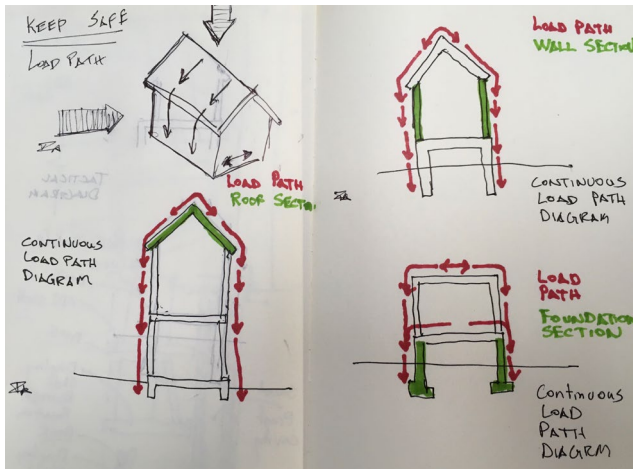 KEEP SAFE
LOAD PATH
LOAD PATH
ROOF SECTION
CONTINUOUS
LOAD PATH
DIAGRAM
LOAD PATH
WALL SECTION
CONTINUOUS
LOAD PATH
DIAGRAM
LOAD
PATH
FOUNDATION
SECTION
Continuous
LOAD
PATH
DIAGRM